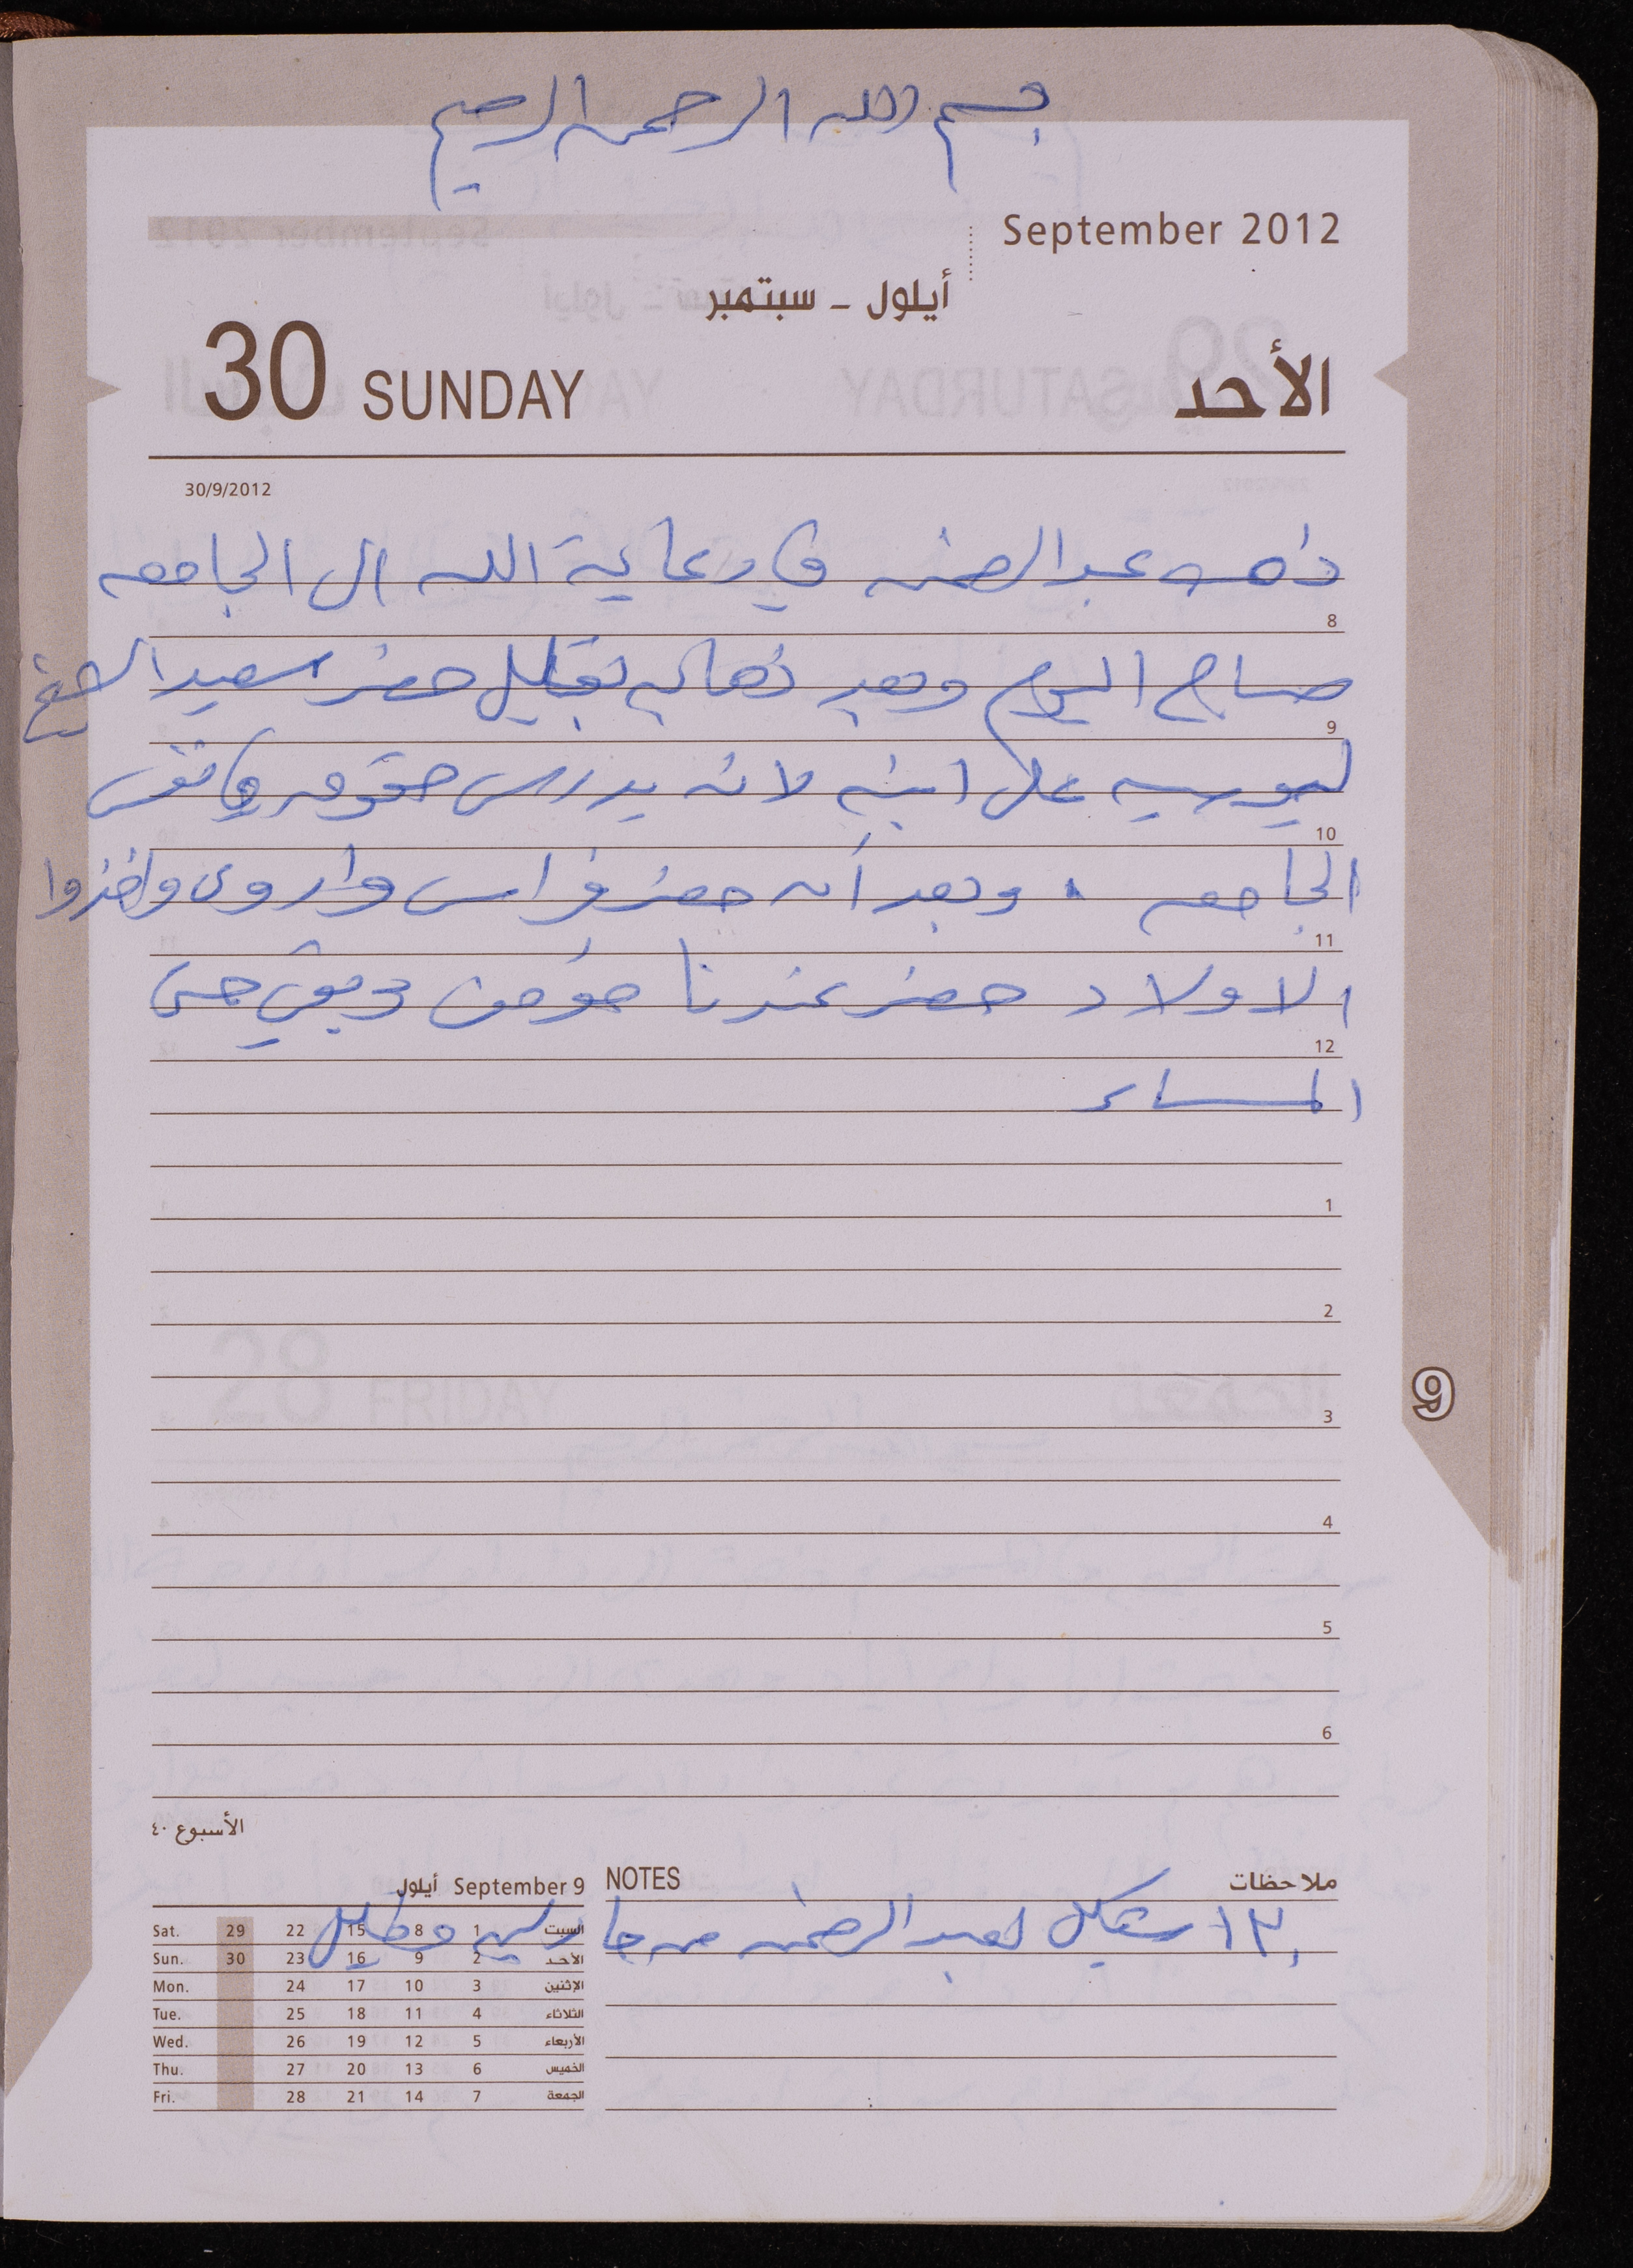 بسم الله الرحمن الرحيم
September 2012
أيلول - سبتمبر
30 SUNDAY الأحد
30/9/2012
ذهب عبد الرحمن في رعاية الله الى الجامعه
8
صباح اليوم وبعد ذهابه بقليل حضر سعيد الشيخ
9
على ابنه لانه يدرس حقوق في نفس
10
الجامعه . وبعد أن حضر فراس واروى واخذوا
11
الاولاد حضر عندنا مؤمن وبقي حتى
12
المساء
1
2
3
4
5
6
الأسبوع ٤٠
NOTES ملاحظات
١٣٠ شيكل لعبد الرحمن من
أيلول September 9
Sat. 29 22 15 8 1 السبت
Sun. 30 23 16 9 2 الأحد
Mon. 24 17 10 3 الإثنين
Tue. 25 18 11 4 الثلاثاء
Wed. 26 19 12 5 الأربعاء
Thu. 27 20 13 6 الخميس
Fri. 28 21 14 7 الجمعة
9